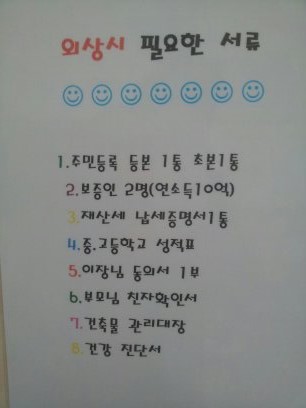 외상시 필요한 서류
1.주민등록 등본 1통 초본1통
2.보증인 2명(연소득10억)
3.재산세 납세증명서1통
4.중.고등학교 성적표
5.이장님 동의서 1부
6.부모님 친자확인서
7.건축물 관리대장
8.건강 진단서